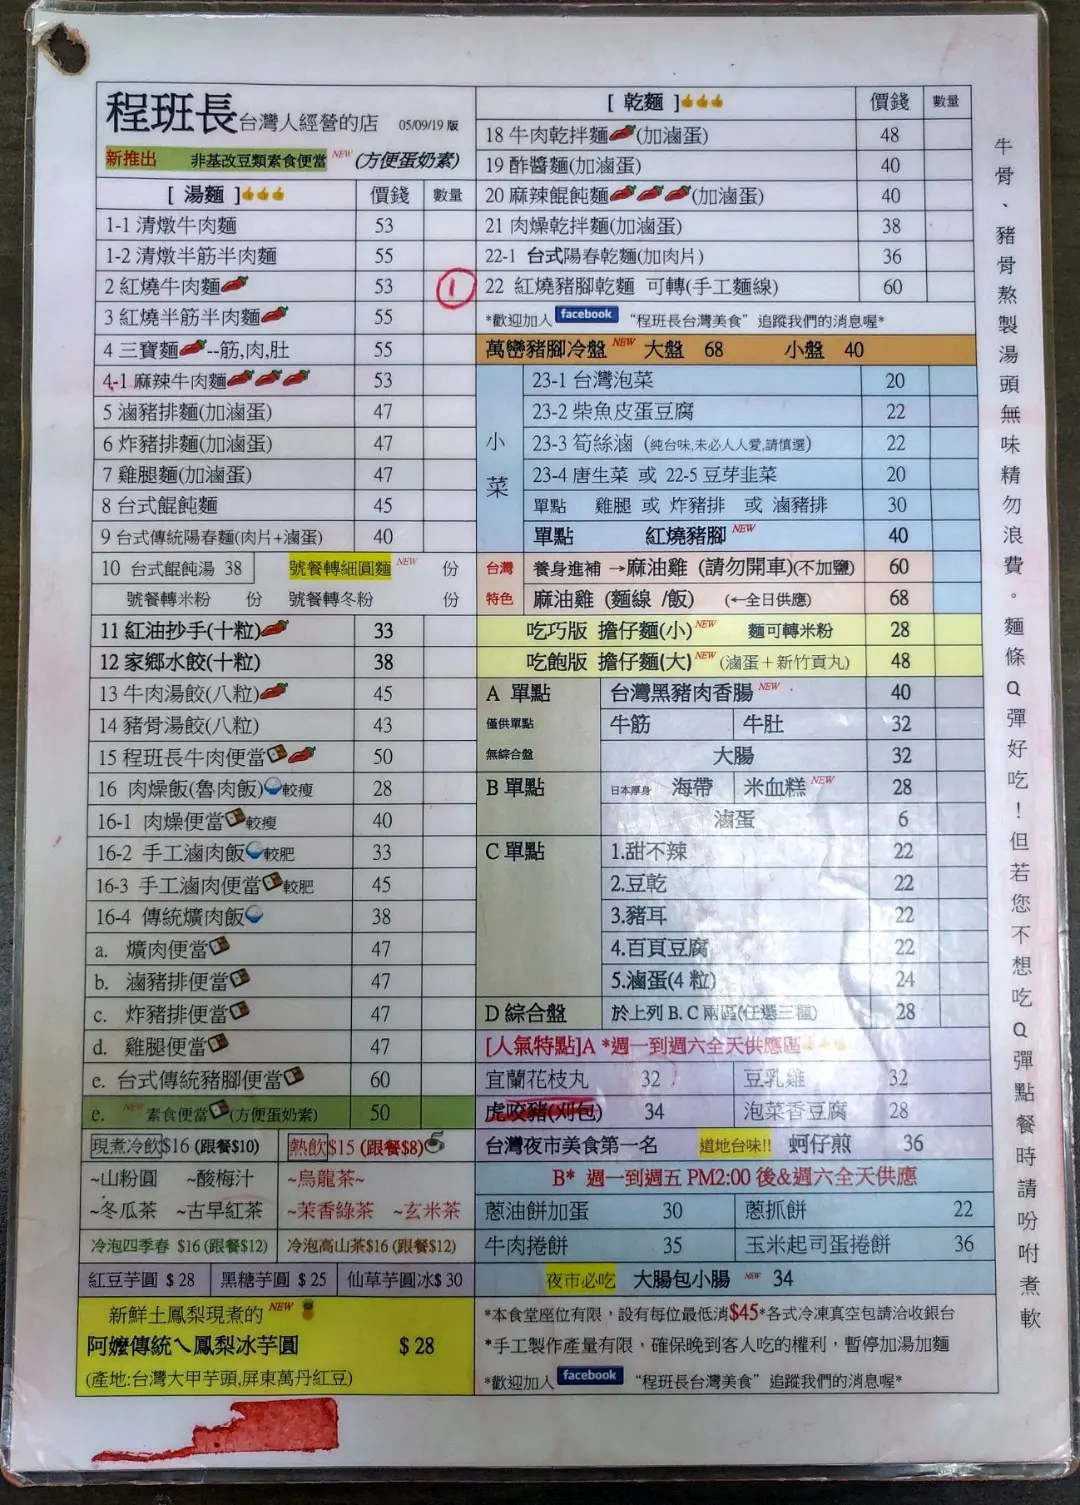 程班長台灣人經營的店 05/09/19 版
新推出 非基改豆類素食便當 NEW (方便蛋奶素)
[ 湯麵 ] 價錢 數量
1-1 清燉牛肉麵 53
1-2 清燉半筋半肉麵 55
2 紅燒牛肉麵 53 1
3 紅燒半筋半肉麵 55
4 三寶麵--筋,肉,肚 55
4-1 麻辣牛肉麵 53
5 滷豬排麵(加滷蛋) 47
6 炸豬排麵(加滷蛋) 47
7 雞腿麵(加滷蛋) 47
8 台式餛飩麵 45
9 台式傳統陽春麵(肉片+滷蛋) 40
10 台式餛飩湯 38 號餐轉細圓麵 NEW 份
號餐轉米粉 份 號餐轉冬粉 份
11 紅油抄手(十粒) 33
12 家鄉水餃(十粒) 38
13 牛肉湯餃(八粒) 45
14 豬骨湯餃(八粒) 43
15 程班長牛肉便當 50
16 肉燥飯(魯肉飯)較瘦 28
16-1 肉燥便當較瘦 40
16-2 手工滷肉飯較肥 33
16-3 手工滷肉便當較肥 45
16-4 傳統爌肉飯 38
a. 爌肉便當 47
b. 滷豬排便當 47
c. 炸豬排便當 47
d. 雞腿便當 47
e. 台式傳統豬腳便當 60
e. NEW 素食便當(方便蛋奶素) 50
現煮冷飲$16 (跟餐$10) 熱飲$15 (跟餐$8)
~山粉圓 ~酸梅汁 ~烏龍茶~
~冬瓜茶 ~古早紅茶 ~茉香綠茶 ~玄米茶
冷泡四季春 $16 (跟餐$12) 冷泡高山茶$16 (跟餐$12)
紅豆芋圓 $ 28 黑糖芋圓 $ 25 仙草芋圓冰$ 30
新鮮土鳳梨現煮的 NEW
阿嬤傳統ㄟ鳳梨冰芋圓 $ 28
(產地:台灣大甲芋頭,屏東萬丹紅豆)
[ 乾麵 ] 價錢 數量
18 牛肉乾拌麵(加滷蛋) 48
19 酢醬麵(加滷蛋) 40
20 麻辣餛飩麵(加滷蛋) 40
21 肉燥乾拌麵(加滷蛋) 38
22-1 台式陽春乾麵(加肉片) 36
22 紅燒豬腳乾麵 可轉(手工麵線) 60
*歡迎加入 facebook “程班長台灣美食” 追蹤我們的消息喔*
萬巒豬腳冷盤 NEW 大盤 68 小盤 40
小菜
23-1 台灣泡菜 20
23-2 柴魚皮蛋豆腐 22
23-3 筍絲滷 (純台味,未必人人愛,請慎選) 22
23-4 唐生菜 或 22-5 豆芽韭菜 20
單點 雞腿 或 炸豬排 或 滷豬排 30
單點 紅燒豬腳 NEW 40
台灣 養身進補 →麻油雞 (請勿開車)(不加鹽) 60
特色 麻油雞 (麵線 /飯) (←全日供應) 68
吃巧版 擔仔麵(小) NEW 麵可轉米粉 28
吃飽版 擔仔麵(大) NEW (滷蛋+新竹貢丸) 48
A 單點 台灣黑豬肉香腸 NEW 40
僅供單點 牛筋 牛肚 32
無綜合盤 大腸 32
B 單點 日本厚身 海帶 米血糕 NEW 28
滷蛋 6
C 單點 1.甜不辣 22
2.豆乾 22
3.豬耳 22
4.百頁豆腐 22
5.滷蛋(4 粒) 24
D 綜合盤 於上列 B. C 兩區(任選三種) 28
[人氣特點]A *週一到週六全天供應區
宜蘭花枝丸 32 豆乳雞 32
虎咬豬(刈包) 34 泡菜香豆腐 28
台灣夜市美食第一名 道地台味!! 蚵仔煎 36
B* 週一到週五 PM2:00 後&週六全天供應
蔥油餅加蛋 30 蔥抓餅 22
牛肉捲餅 35 玉米起司蛋捲餅 36
夜市必吃 大腸包小腸 NEW 34
*本食堂座位有限，設有每位最低消$45*各式冷凍真空包請洽收銀台
*手工製作產量有限，確保晚到客人吃的權利，暫停加湯加麵
*歡迎加入 facebook “程班長台灣美食” 追蹤我們的消息喔*
牛骨、豬骨熬製湯頭無味精勿浪費。麵條Q彈好吃！但若您不想吃Q彈點餐時請吩咐煮軟